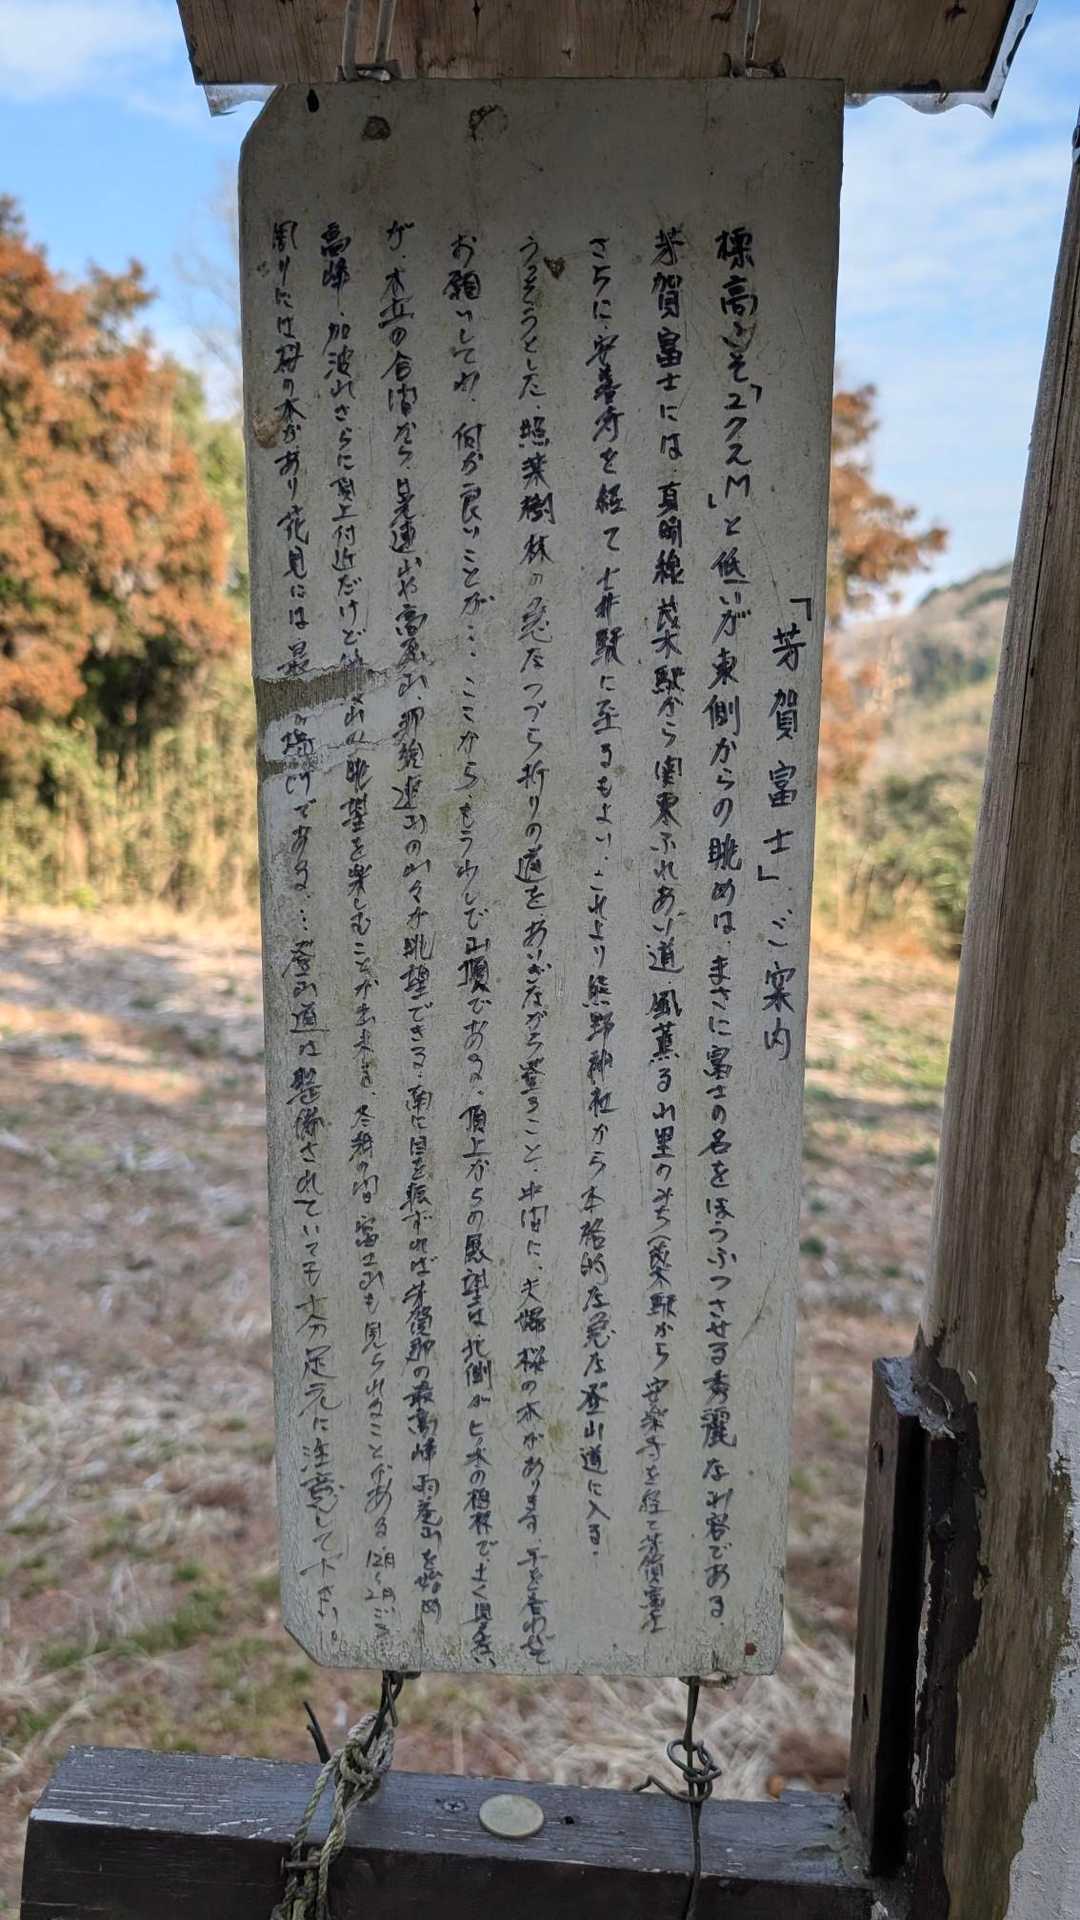 「芳賀富士」ご案内
標高こそ「272M」と低いが東側からの眺めは、まさに富士の名をほうふつさせる秀麗な山容である、
芳賀富士には、真岡線茂木駅から関東ふれあい道、風薫る山里のみち(茂木駅から安楽寺を経て芳賀富士
さらに、安善寺を経て七井駅に至るもよい、これより熊野神社から本格的な急な登山道に入る、
うっそうとした、照葉樹林の急なつづら折りの道をあいぎながら登ること、中間に、夫婦桜の木があります、手を合わせて
お願いしてね、何か良いことが… ここから、もう少しで山頂である、頂上からの展望は北側がヒノ木の植林で、よく見えない
が、木立の合間から、晃連山や高原山、那須連山の山々が眺望できる、南に目を転ずれば芳賀郡の最高峰雨巻山を始め
高峰、加波山さらに頂上付近だけど 眺望を楽しむことが出来ます、冬期の間富士山も見られることがある、12月~2月
周りには桜の木があり花見には最 場所である、…登山道は整備されていても十分足元に注意して下さい。